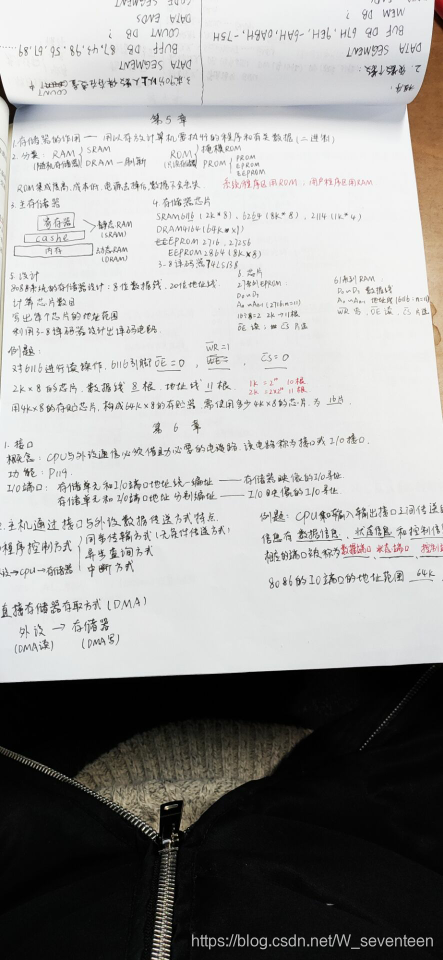 DATA SEGMENT
BUF DB 61H, 9EH, -6AH, 0ABH, -75H
MEM DB ?
DATA SEGMENT
BUFF DB 87, 43, 98, 56, 01, 89
COUNT DB ?
DATA ENDS
CODE SEGMENT
第 5 章
1. 存储器的作用 — 用以存放计算机要执行的程序和有关数据 (二进制)
2. 分类 RAM SRAM ROM 掩模ROM
(随机存储器) DRAM — 刷新 PROM PROM
EPROM
EEPROM
ROM 集成度高, 成本低, 电源去掉后数据不会丢失 系统程序区用ROM, 用户程序区用RAM
3. 主存储器 4. 存储器芯片
寄存器 静态RAM (SRAM)
cashe
内存 动态RAM (DRAM)
SRAM 6116 (2K*8), 6264 (8K*8), 2114 (1K*4)
DRAM 4164 (64K*1)
EPROM 2716, 27256
EEPROM 2864 (8K*8)
3-8译码器 74LS138
5. 设计
8088系统的存储器设计: 8位数据线, 20位地址线.
计算芯片数目
写出每个芯片的地址范围
利用3-8译码器设计出译码电路.
6 芯片
2716 EPROM
D₀~D₇
6116 RAM
D₀~D₇
例题:
对6116进行读操作, 6116引脚 OE = 0, WE = 1, CS = 0
2K×8的芯片, 数据线 8 根, 地址线 11 根
1K = 2¹⁰ 10根
2K = 2×2¹⁰ 11根
用4K×8的存储芯片, 构成64K×8的存贮器, 需使用多少4K×8的芯片, 为 16片.
第 6 章
1. 接口
概念: CPU与外设通信必须借助必要的电路, 该电路称为接口或I/O接口.
功能: P119.
I/O端口: 存储单元和I/O端口地址统一编址 —— 存储器映像的I/O寻址
存储单元和I/O端口地址分别编址 —— I/O映像的I/O寻址
2. 主机通过接口与外设数据传送方式特点.
程序控制方式 同步传输方式 (无条件传送方式)
异步查询方式
中断方式
→ CPU → 存储器
例题: CPU和输入输出接口之间传送的
信息有 数据信息, 状态信息 和控制信
相应的端口被称为 数据端口 状态端口,
8086的IO端口的地址范围 64K
直接存储器存取方式 (DMA)
外设 → 存储器
(DMA读) (DMA写)
https://blog.csdn.net/W_seventeen